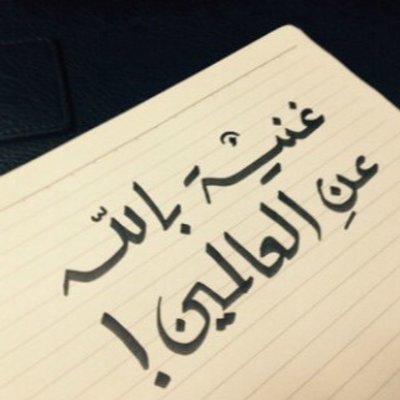 غنية بالله
عن العالمين !